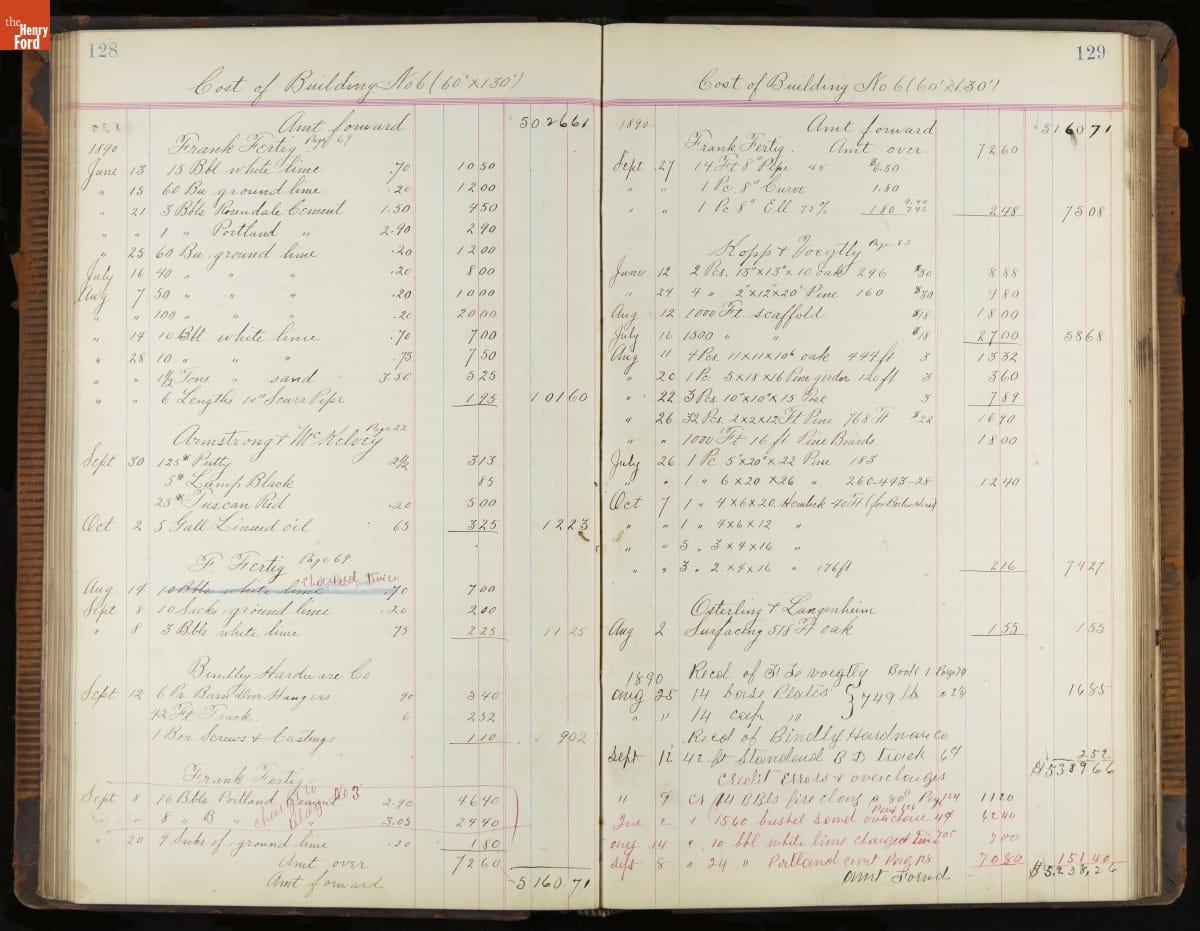 the
Henry
Ford
128
Cost of Building No 6 (60' x 130')
Amt forward 5026 61
1890 Frank Fertig Page 69
June 13 15 Bbl white lime .70 10 50
" 15 60 Bu ground lime .20 12 00
" 21 3 Bbls Rosendale Cement 1.50 4 50
" " 1 " Portland " 2.90 2 90
" 25 60 Bu ground lime .20 12 00
July 16 40 " " " .20 8 00
Aug 7 50 " " " .20 10 00
" " 100 " " " .20 20 00
" 14 10 Bbl white lime .70 7 00
" 28 10 " " " .75 7 50
" " 1½ Tons " sand 3.50 5 25
" " 6 Lengths 10" Sewer Pipe 1 95 101 60
Armstrong & McKelvey Page 22
Sept 30 125# Putty 2½ 3 13
5# Lamp Black 85
25# Tuscan Red .20 5 00
Oct 2 5 Gall Linseed oil .65 3 25 12 23
F. Fertig Page 69
charged twice
Aug 14 10 Bbls white lime .70 7 00
Sept 8 10 Sacks ground lime .20 2 00
" 8 3 Bbls white lime .75 2 25 11 25
Bindley Hardware Co
Sept 12 6 Pr. Barn Door Hangers 90 5 40
42 Ft Track. 6 2 52
1 Box Screws & Castings 1 10 9 02
Frank Fertig
Sept 8 16 Bbls Portland Cement 2.90 46 40
charge to Bldg No 3
" " 8 " B " " 3.05 24 40
" 20 9 Sacks of ground lime .20 1 80
Amt over 72 60
Amt forward 5160.71
129
Cost of Building No 6 (60' x 130')
1890 Amt forward 5160 71
Frank Fertig. Amt over 72 60
Sept 27 14 Ft 8" Pipe 45 $6.30
" " 1 Pc. 8" Curve 1.80
" " 1 Pc 8" Ell. 75% 1.80 9.90 7.42 2 48 75 08
Kopp & Voegtly Page 83
June 12 2 Pcs. 13"x13"x10 oak 296 $30 8 88
" 24 4 " 2"x12"x20' Pine 160 $30 4 80
Aug 12 1000 Ft. scaffold $18 18 00
July 16 1500 " " $18 27 00 58 68
Aug 11 4 Pcs. 11x11x10⁶ oak 444 ft 3 13 32
" 20 1 Pc. 5x18x16 Pine girder 120 ft 3 3 60
" 22 3 Pcs. 10"x10"x15 Post 3 7 89
" 26 32 Pcs. 2x2x12 Ft Pine 768 ft $22 16 90
" " 1000 Ft 16 ft. Pine Boards 18 00
July 26 1 Pc 5"x20"x22 Pine 183
" " 1 " 6x20x26 " 260-443-28 12 40
Oct 7 1 " 4x6x20. Hemlock 40 Ft (for Boiler House)
" " 1 " 4x6x12 "
" " 5 " 3x4x16 "
" " 3 " 2x4x16 " 176 ft 2 16 74 27
Osterling & Langenheim
Aug 2 Surfacing 518 Ft oak 1 55 1 55
1890 Recd of voegtly Book 1 Page 74
Aug 25 14 base Plates } 749 lb 2¼ 16 85
" " 14 cap "
Recd of Bindly Hardware Co
Sept 12 42 ft Standard B D track 6¢ 2 52
$5389 66
Credit Errors & overcharges
" 9 cr 14 BBls fire clay @ 80¢ Page 124 11 20
June 2 " 1560 bushel sand overcharge 4¢ Page 124 62 40
Aug 14 " 10 bbl white lime charged twice 70¢ 7 00
Sept 8 " 24 " Portland cemt Page 128 70 80 151 40
Amt Forwd $5,238.26